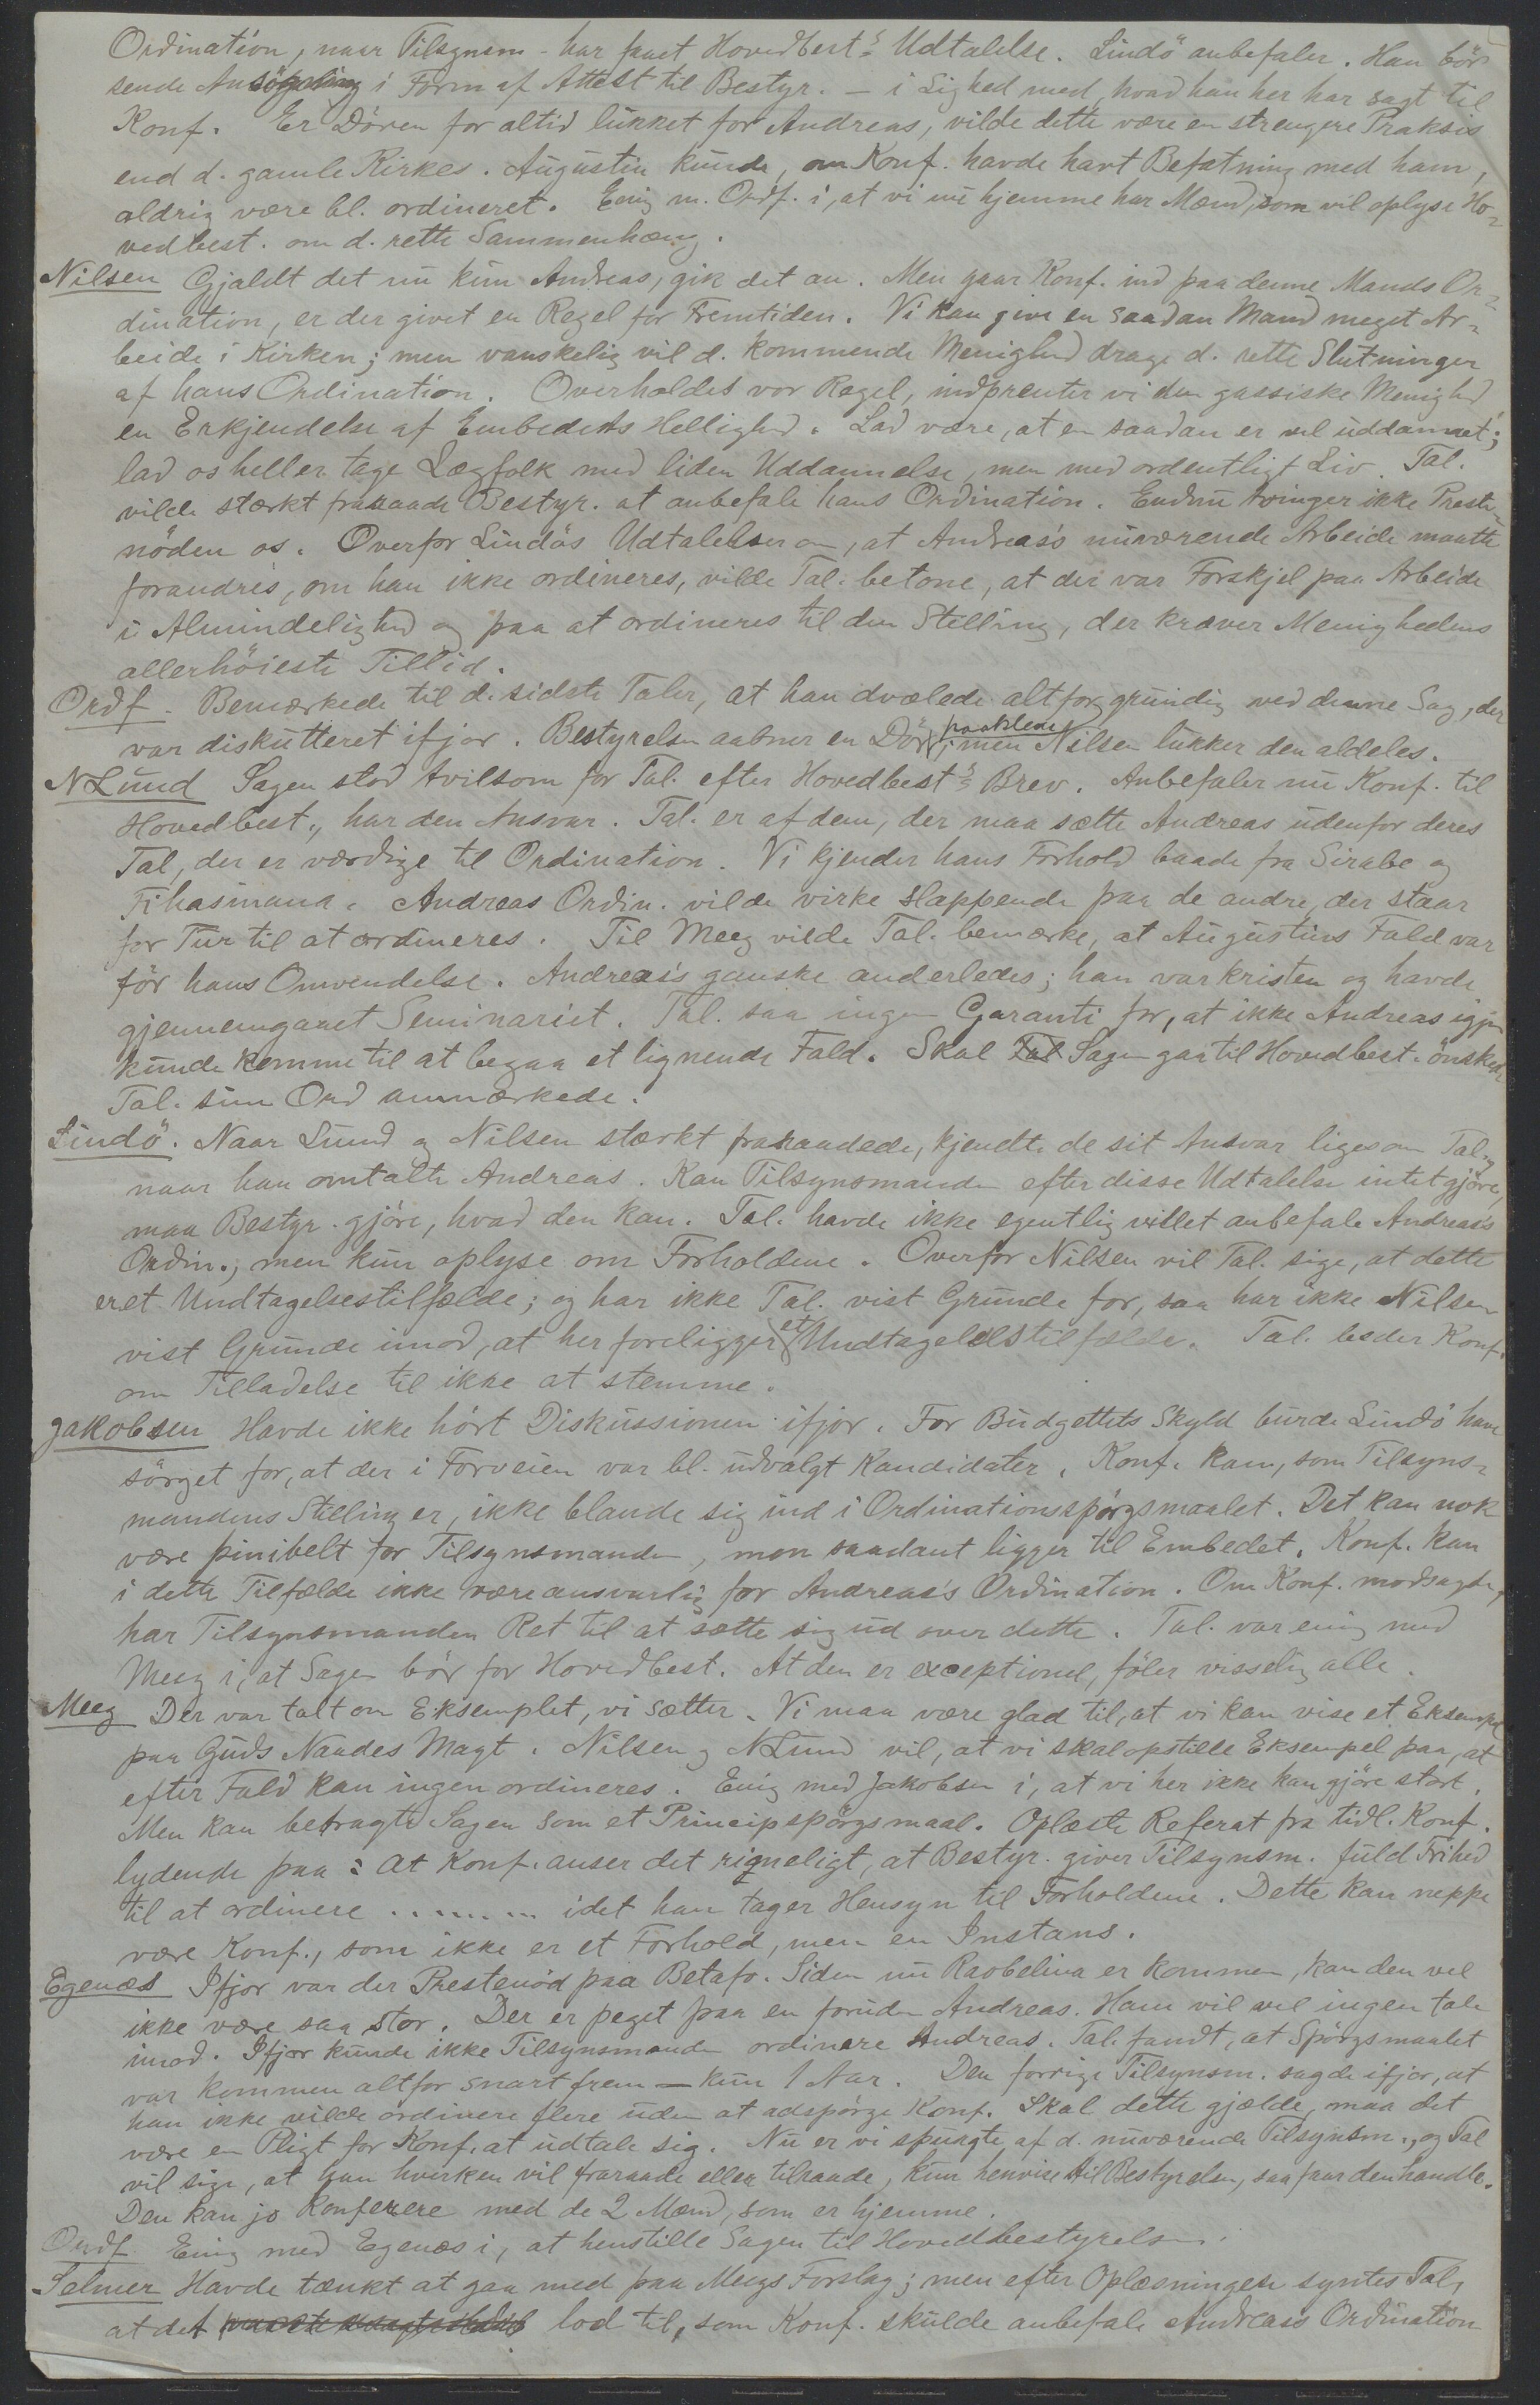 Ordination, naar Tilsynsm. har faaet Hovedbest's Udtalelse. Lindö anbefaler. Han bör
sende Ansögning i Form af Attest til Bestyr. – i Lighed med, hvad han her har sagt til
Konf. Er Dören for altid lukket for Andreas, vilde dette være en strengere Praksis
end d. gamle Kirkes. Augustin kunde, om Konf. havde havt Befatning med ham,
aldrig være bl. ordineret. Enig m. Ordf. i, at vi nu hjemme har Mænd, som vil oplyse Ho-
vedbest. om d. rette Sammenhæng.
Nilsen Gjaldt det nu kun Andreas, gik det an. Men gaar Konf. ind paa denne Mands Or-
dination, er der givet en Regel for Fremtiden. Vi kan give en saadan Mand meget Ar-
beide i Kirken; men vanskelig vil d. kommende Menighed drage d. rette Slutninger
af hans Ordination. Overholdes vor Regel, indprenter vi den gassiske Menighed
en Erkjendelse af Embedets Hellighed. Lad være, at en saadan er vel uddannet;
lad os heller tage Lægfolk med liden Uddannelse, men med ordentligt Liv. Tal.
vilde stærkt fraraade Bestyr. at anbefale hans Ordination. Endnu tvinger ikke Preste-
nöden os. Overfor Lindös Udtalelser om, at Andreas's nuværende Arbeide maatte
forandres, om han ikke ordineres, vilde Tal. betone, at der var Forskjel paa Arbeide
i Almindelighed og paa at ordineres til den Stilling, der kræver Menighedens
allerhöieste Tillid.
Ordf. Bemærkede til d. sidste Taler, at han dvælede altfor grundig ved denne Sag, der
var diskutteret ifjor. Bestyrelsen aabner en Dör paaklem; men Nilsen lukker den aldeles.
NLund Sagen stod tvilsom for Tal. efter Hovedbest's Brev. Anbefaler nu Konf. til
Hovedbest., har den Ansvar. Tal. er af dem, der maa sætte Andreas udenfor deres
Tal, der er værdige til Ordination. Vi kjender hans Forhold baade fra Sirabe og
Fihasinana. Andreas Ordin. vilde virke slappende paa de andre, der staar
for Tur til at ordineres. Til Meeg vilde Tal. bemærke, at Augustins Fald var
för hans Omvendelse. Andreas's ganske anderledes; han var kristen og havde
gjennemgaaet Seminariet. Tal. saa ingen Garanti for, at ikke Andreas igjen
kunde komme til at begaa et lignende Fald. Skal Tal Sagen gaa til Hovedbest. önskede
Tal. sine Ord anmærkede.
Lindö. Naar Lund og Nilsen stærkt fraraadede, kjendte de sit Ansvar ligesom Tal.,
naar han omtalte Andreas. Kan Tilsynsmanden efter disse Udtalelse intet gjöre,
maa Bestyr. gjöre, hvad den kan. Tal. havde ikke egentlig villet anbefale Andreas's
Ordin., men kun oplyse om Forholdene. Overfor Nilsen vil Tal. sige, at dette
er et Undtagelsestilfælde; og har ikke Tal. vist Grunde for, saa har ikke Nilsen
vist Grunde imod, at her foreligger et Undtagelsestilfælde. Tal. beder Konf.
om Tilladelse til ikke at stemme.
Jakobsen Havde ikke hört Diskussionen ifjor. For Budgettets Skyld burde Lindö have
sörget for, at der i Forveien var bl. udvalgt Kandidater. Konf. kan, som Tilsyns-
mandens Stilling er, ikke blande sig ind i Ordinationsspörgsmaalet. Det kan nok
være pinibelt for Tilsynsmanden, men saadant ligger til Embedet. Konf. kan
i dette Tilfælde ikke være ansvarlig for Andreas's Ordination. Om Konf. modsagde,
har Tilsynsmanden Ret til at sætte sig ud over dette. Tal. var enig med
Meeg i, at Sagen bör for Hovedbest. At den er exceptionel, föler visselig alle.
Meeg Der var talt om Eksemplet, vi sætter. Vi maa være glad til, at vi kan vise et Eksempel
paa Guds Naades Magt. Nilsen og NLund vil, at vi skal opstille Eksempel paa, at
efter Fald kan ingen ordineres. Enig med Jakobsen i, at vi her ikke kan gjöre stort.
Men kan betragte Sagen som et Principspörgsmaal. Oplæste Referat fra tidl. Konf.
lydende paa: at Konf. anser det rigneligt, at Bestyr. giver Tilsynsm. fuld Frihed
til at ordinere ......... idet han tager Hensyn til Forholdene. Dette kan neppe
være Konf., som ikke er et Forhold, men en Instans.
Egenæs Ifjor var der Prestenöd paa Betafo. Siden nu Raobelina er kommen, kan den vel
ikke være saa stor. Der er peget paa en foruden Andreas. Ham vil vel ingen tale
imod. Ifjor kunde ikke Tilsynsmanden ordinere Andreas. Tal. fandt, at Spörgsmaalet
var kommen altfor snart frem – kun 1 Aar. Den forrige Tilsynsm. sagde ifjor, at
han ikke vilde ordinere flere uden at adspörge Konf. Skal dette gjælde, maa det
være en Pligt for Konf. at udtale sig. Nu er vi spurgte af d. nuværende Tilsynsm., og Tal
vil sige, at han hverken vil fraraade eller tilraade, kun henvise til Bestyrelsen, saa faar den handle.
Den kan jo konferere med de 2 Mænd, som er hjemme.
Ordf. Enig med Egenæs i, at henstille Sagen til Hovedbestyrelsen.
Selmer Havde tænkt at gaa med paa Meegs Forslag; men efter Oplæsningen syntes Tal,
at det lod til, som Konf. skulde anbefale Andreas's Ordination